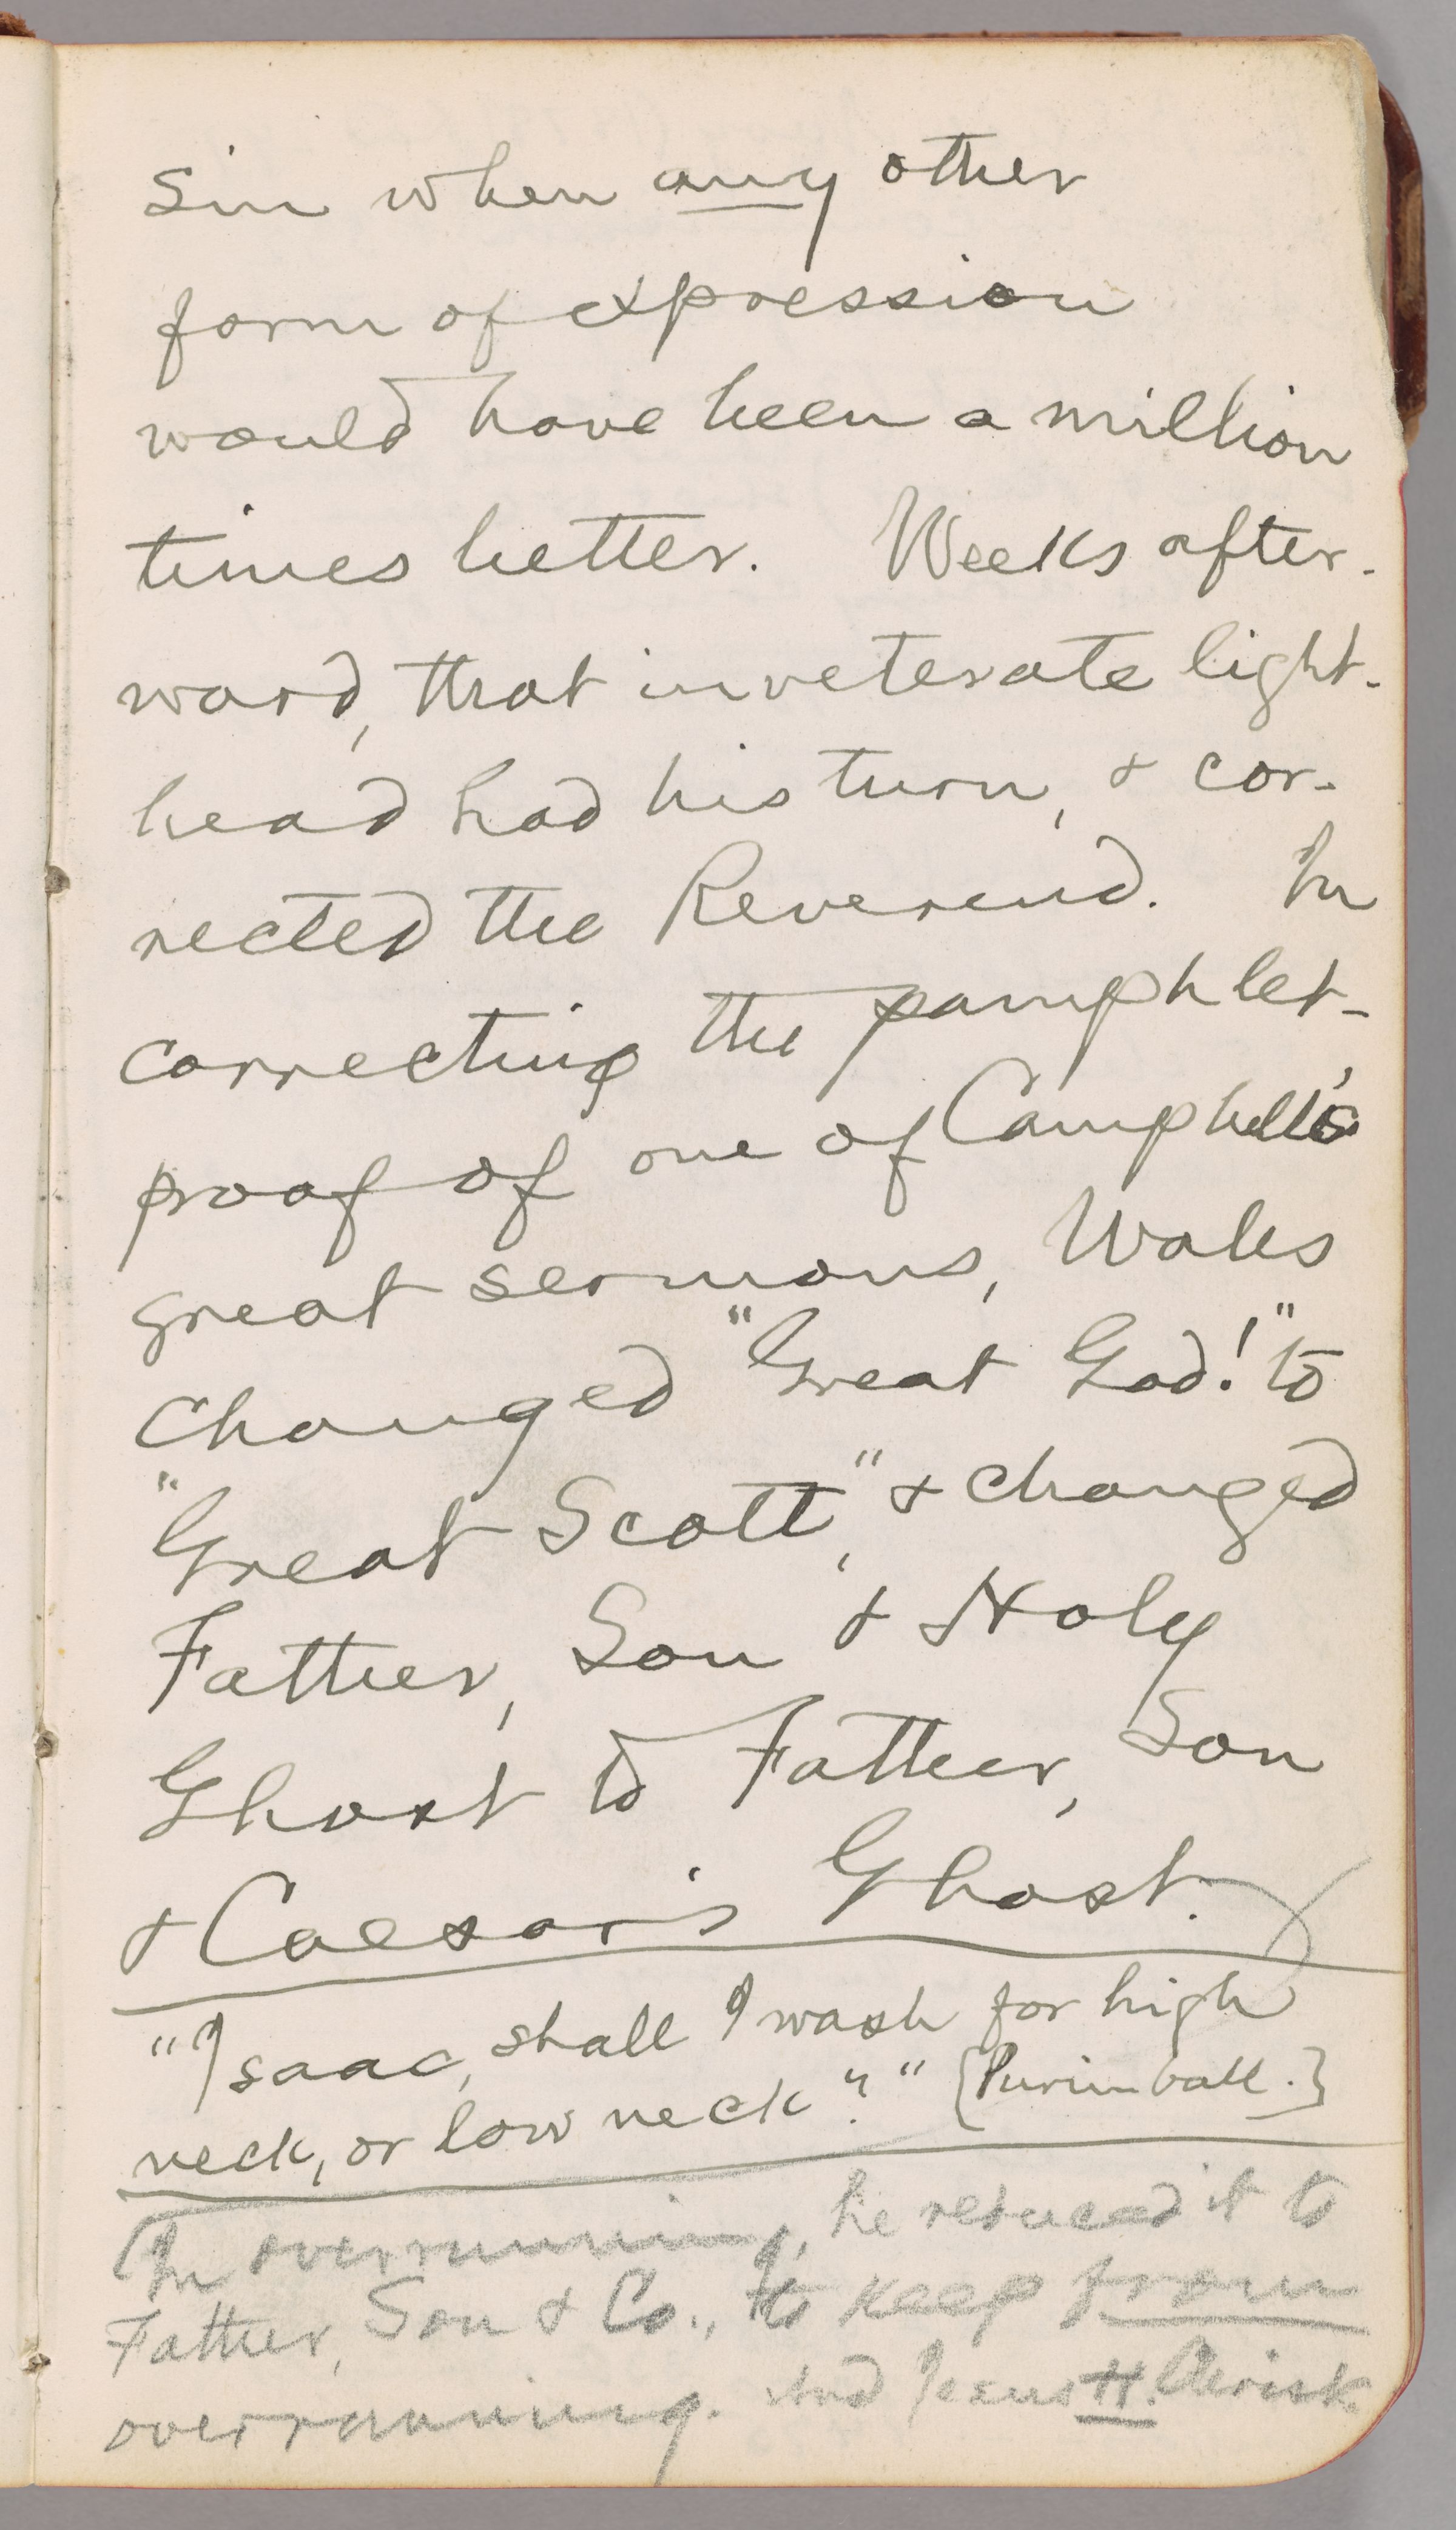 sin when any other
form of expression
would have been a million
times better. Weeks after-
ward, that inveterate light-
head had his turn, & cor-
rected the Reverend. In
correcting the pamphlet-
proof of one of Campbell's
great sermons, Wales
changed "Great God!" to
"Great Scott," & changed
Father, Son & Holy
Ghost to Father, Son
& Caesar's Ghost.
"Isaac, shall I wash for high
neck, or low neck?" [Purim ball.]
(In overrunning, he reduced it to
Father, Son & Co., to keep from
overrunning. And Jesus H. Christ